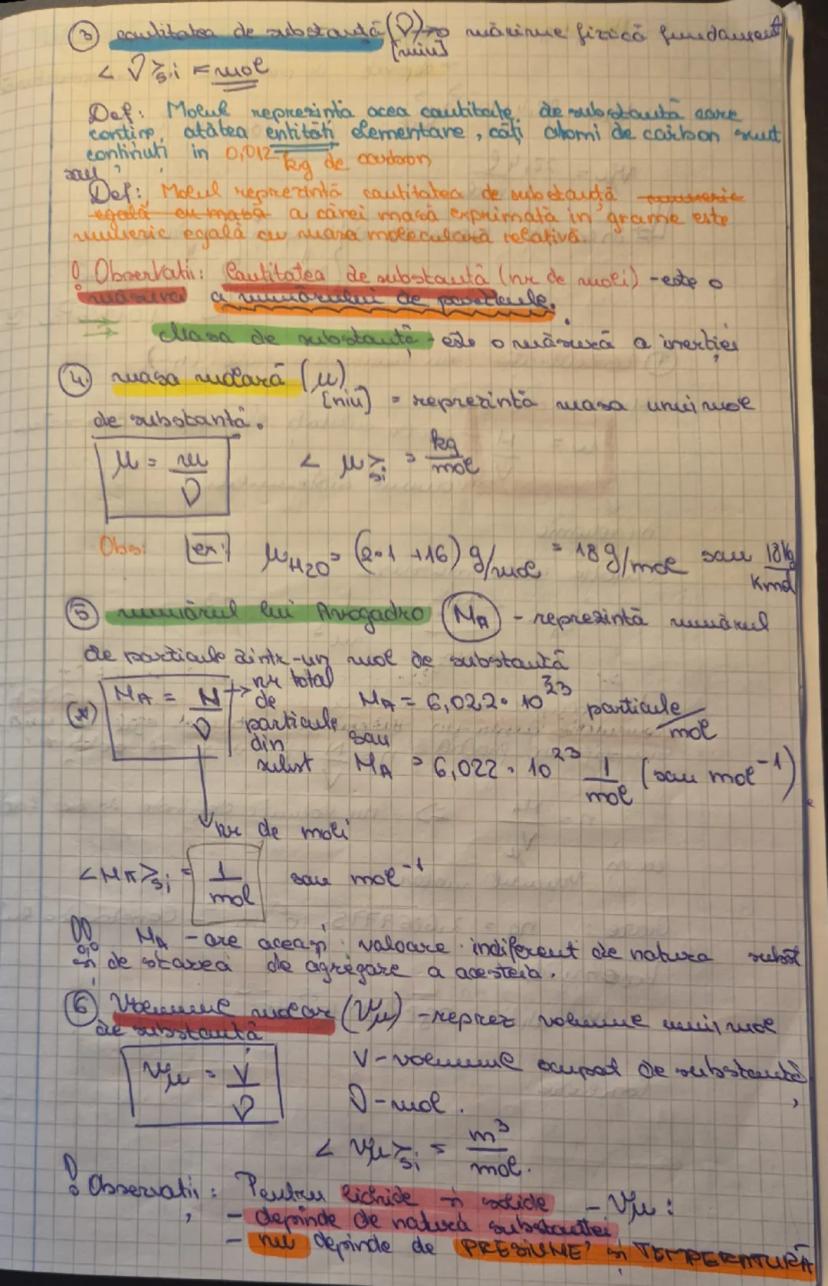 ③ cantitatea de substanță (ν) → mărime fizică fundament
[niu]
< ν >si = mol
Def: Molul reprezintă acea cantitate de substanță care
conține atâtea entități elementare, câți atomi de carbon sunt
conținuți în 0,012 kg de carbon
sau
Def: Molul reprezintă cantitatea de substanță numeric
egală cu masa a cărei masă exprimată în grame este
numeric egală cu masa moleculară relativă.
! Observații: Cantitatea de substanță (nr de moli) - este o
măsură a numărului de particule.
⇒ Masa de substanță - este o măsură a inerției
④. masa molară (μ)
[niu] = reprezintă masa unui mol
de substanță.
μ = m/ν < μ >si = kg/mol
Obs: ex: μH2O = (2·1 + 16) g/mol = 18 g/mol sau 18kg/Kmol
⑤ numărul lui Avogadro (NA) - reprezintă numărul
de particule dintr-un mol de substanță
(*) NA = N/ν → nr total de particule din subst
NA = 6,022 · 10^23 particule/mol
sau
NA = 6,022 · 10^23 1/mol (sau mol^-1)
↓ nr de moli
<NA>si = 1/mol sau mol^-1
!! NA - are aceași valoare indiferent de natura subst
și de starea de agregare a acesteia.
⑥ Volumul molar (Vμ) - reprez volumul unui mol
de substanță
Vμ = V/ν V - volumul ocupat de substanță
ν - mol.
< Vμ >si = m^3/mol.
! Observații: Pentru lichide și solide - Vμ:
- depinde de natura substanței
- nu depinde de PRESIUNE și TEMPERATURĂ